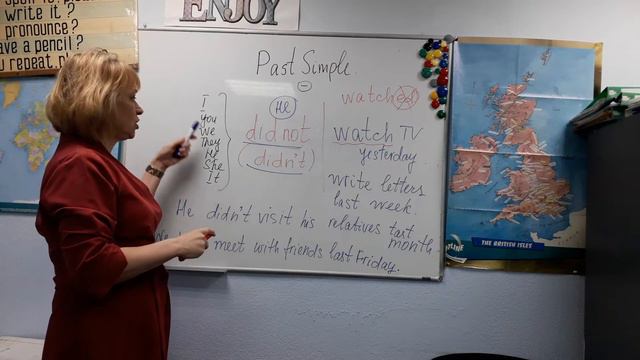 ENJOY
write it?
pronounce?
ave a pencil?
u repeat, pl
Past Simple
−
I
You
We
They
He
She
It
не
did not
(didn't)
watched
watch TV
yesterday
write letters
last week.
He didn't visit his relatives last month
meet with friends last Friday.
THE BRITISH ISLES